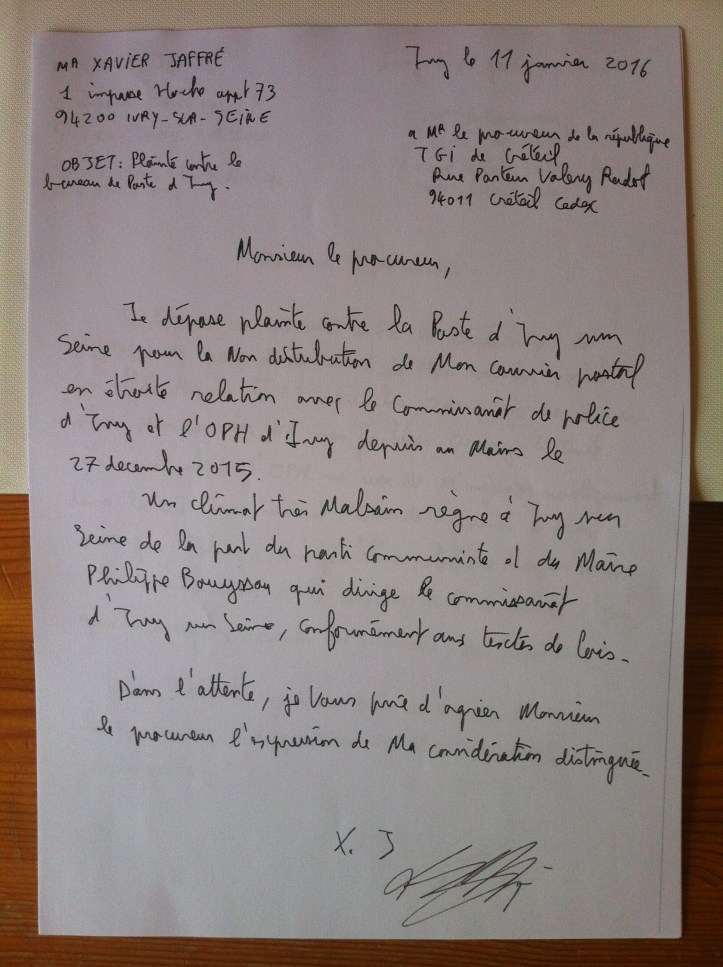 MR XAVIER JAFFRÉ
1 impasse Hoche appt 73
94200 IVRY-SUR-SEINE
OBJET: Plainte contre le
bureau de Poste d'Ivry.
Ivry le 11 janvier 2016
a MR le procureur de la république
TGI de Créteil
Rue Pasteur Valery Radot
94011 Créteil Cedex
Monsieur le procureur,
Je dépose plainte contre la Poste d'Ivry sur
Seine pour la Non distribution de Mon courrier postal
en étroite relation avec le Commissariat de police
d'Ivry et l'OPH d'Ivry depuis au Moins le
27 decembre 2015.
Un climat très Malsain règne à Ivry sur
Seine de la part du parti communiste et du Maire
Philippe Bouyssou qui dirige le commissariat
d'Ivry sur Seine, conformément aux textes de lois.
Dans l'attente, je vous prie d'agréer Monsieur
le procureur l'expression de Ma considération distinguée.
X. J